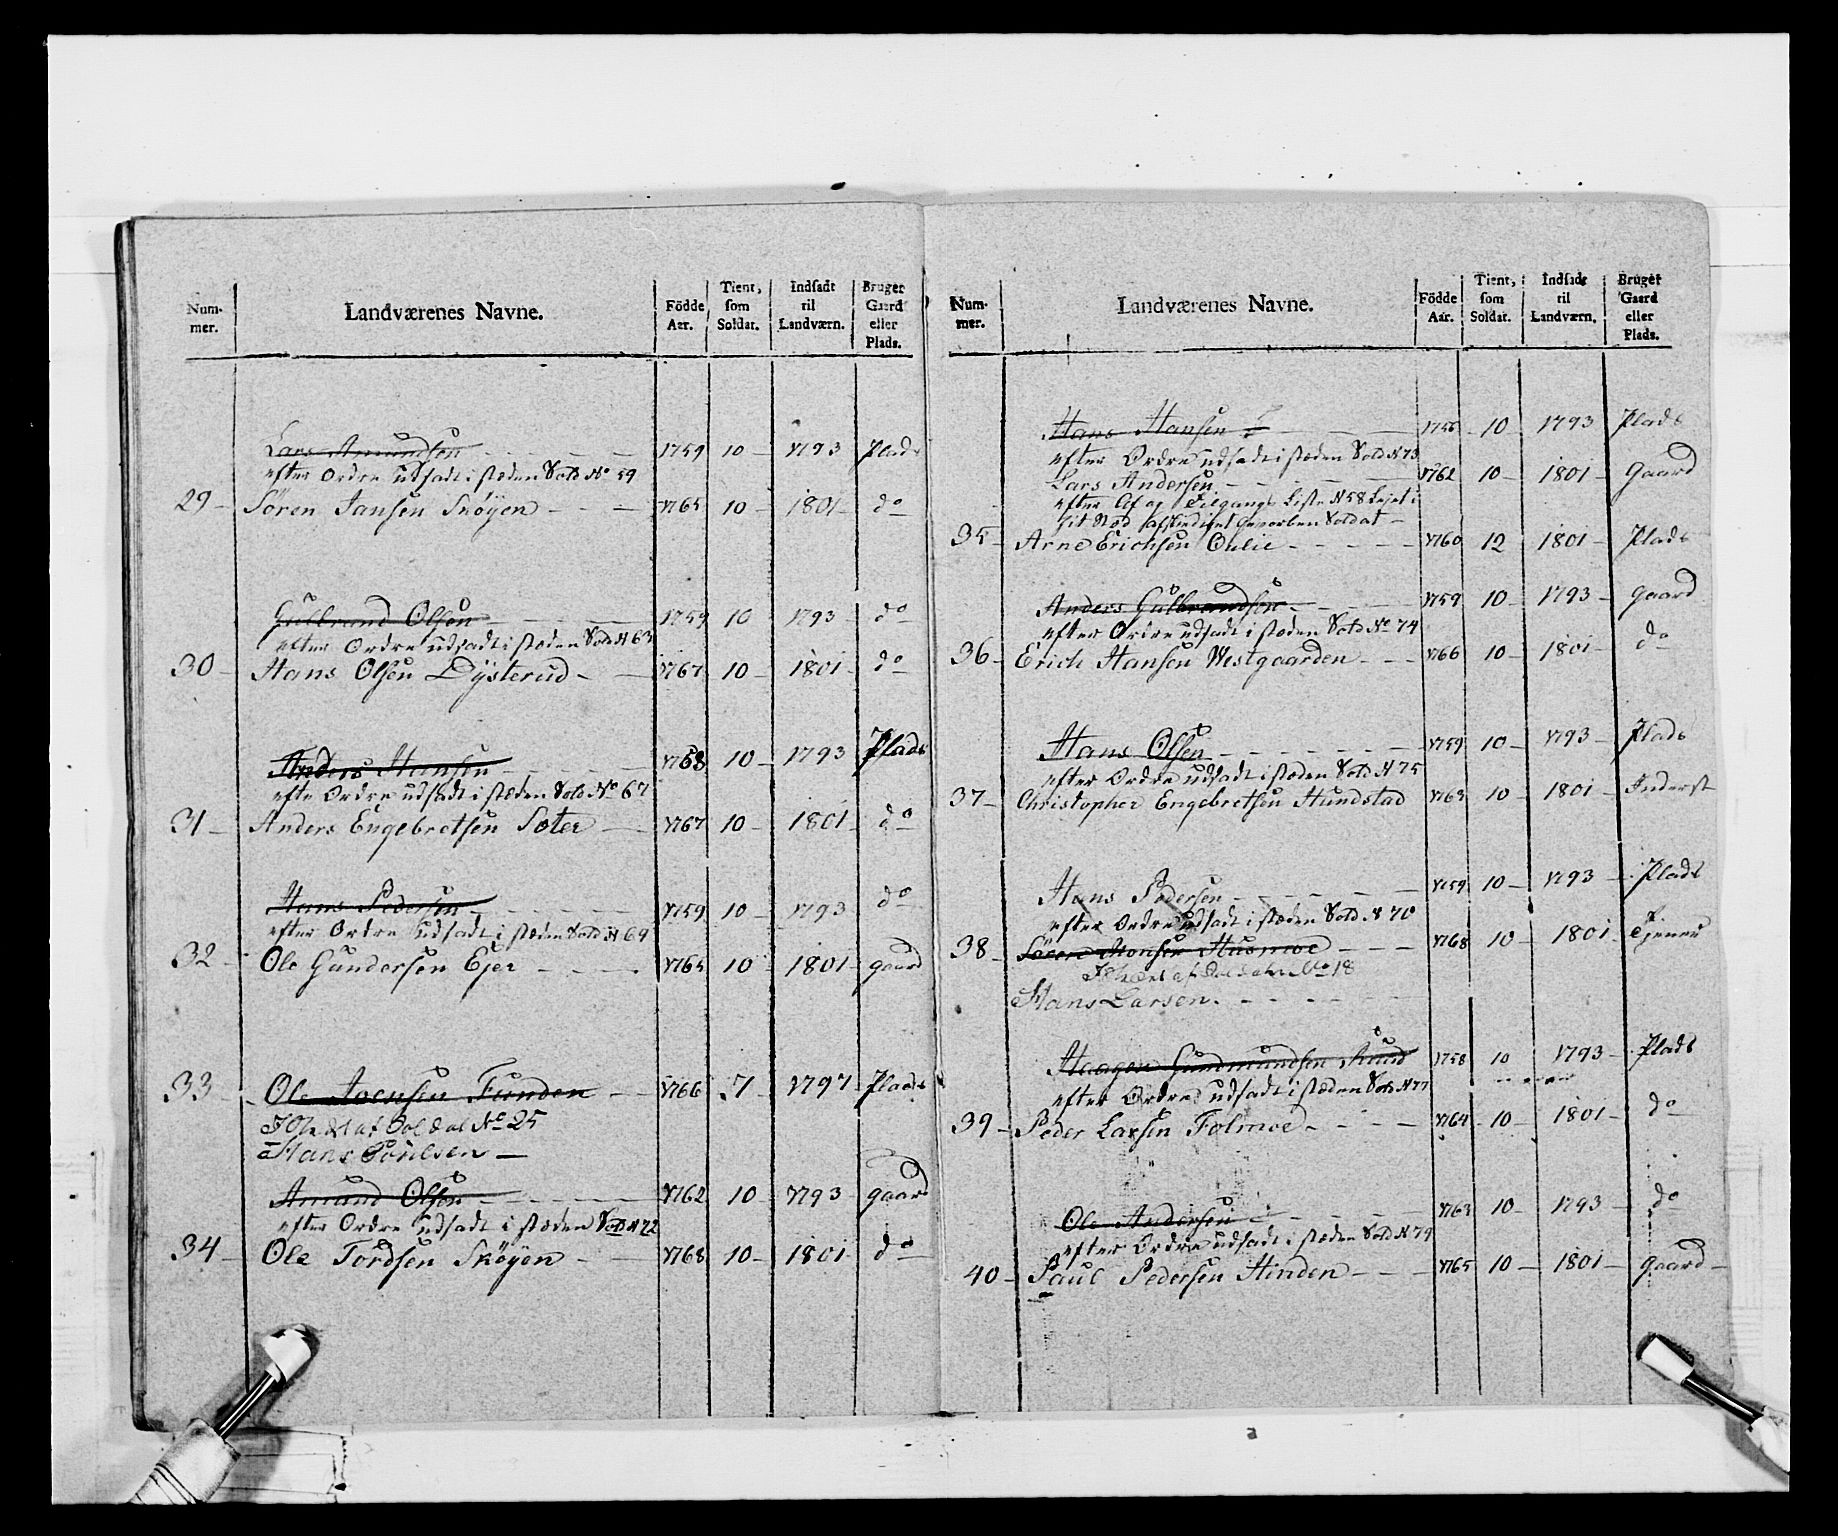 Num-mer. Landværenes Navne. Födde Aar. Tient, som Soldat. Indsadt til Landværn. Bruger Gaard eller Plads.
Lars Amundsen 1759 10 1793 Plads
efter Ordre udsadt i stæden Sold No 59
29 Sören Jansen Sköyen 1765 10 1801 do
Gulbrand Olsen 1759 10 1793 do
efter Ordre udsadt i stæden Sold N 63
30 Hans Olsen Dÿsterud 1767 10 1801 do
Anders Hansen 1768 10 1793 Plads
efte Ordre udsadt i stæden Sold No 67
31 Anders Engebretsen Soter 1767 10 1801 do
Hans Pedersen 1759 10 1793 do
efter Ordre udsadt i stæden Sold N 69
32 Ole Gundersen Ejer 1765 10 1801 gaard
33 Ole Iversen Funden 1766 7 1797 Plads
af Soldat No 25
Hans Poulsen
Amund Olsen 1762 10 1793 gaard
efter Ordre udsadt i stæden Sold N 72
34 Ole Tordsen Sköyen 1768 10 1801 do
Num-mer. Landværenes Navne. Födde Aar. Tient, som Soldat. Indsadt til Landværn. Bruger Gaard eller Plads.
Hans Hansen 1756 10 1793 Plads
efter Ordre udsadt i stæden Sold N 73
Lars Andersen 1762 10 1801 Gaard
efter Af og Tilgangs Liste N 58
afskediget gevorben Soldat
35 Arne Erichsen Oulie 1760 12 1801 Plads
Anders Gulbrandsen 1759 10 1793 gaard
efter Ordre udsadt i stæden Sold No 74
36 Erich Hansen Westgaarden 1766 10 1801 do
Hans Olsen 1759 10 1793 Plads
efter Ordre udsadt i stæden Sold N 75
37 Christopher Engebretsen Hundstad 1763 10 1801 Inderst
Hans Pedersen 1759 10 1793 Plads
efter Ordre udsadt i stæden Sold N 76
38 Sören Monsen Husmoe 1768 10 1801 Tjener
af No 18
Hans Larsen
Haagen Gudmundsen Ruud 1758 10 1793 Plads
efter Ordre udsadt i stæden Sold N 77
39 Peder Larsen Folmoe 1764 10 1801 do
Ole Andersen 1763 10 1793 do
efter Ordre udsadt i stæden Sold N 79
40 Paul Pedersen Hinden 1765 10 1801 gaard